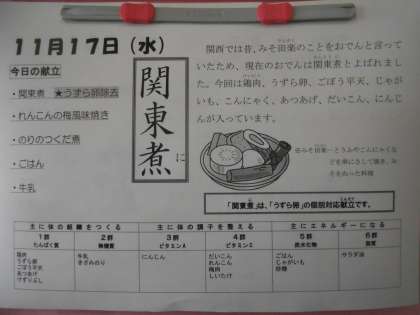 11月17日(水)
今日の献立
・関東煮 ★うずら卵除去
・れんこんの梅風味焼き
・のりのつくだ煮
・ごはん
・牛乳
関東煮
に
関西では昔、みそ田楽のことをおでんと言って
いたため、現在のおでんは関東煮とよばれまし
た。今回は鶏肉、うずら卵、ごぼう平天、じゃが
いも、こんにゃく、あつあげ、だいこん、にんじ
んが入っています。
みそ田楽…とうふやこんにゃくな
どを串にさして焼き、み
そをぬった料理
「関東煮」は、「うずら卵」の個別対応献立です。
主に体の組織をつくる 主に体の調子を整える 主にエネルギーになる
1群 2群 3群 4群 5群 6群
たんぱく質 無機質 ビタミンA ビタミンC 炭水化物 脂質
鶏肉 牛乳 にんじん だいこん ごはん サラダ油
うずら卵 きざみのり れんこん じゃがいも
ごぼう平天 梅肉 砂糖
あつあげ しいたけ